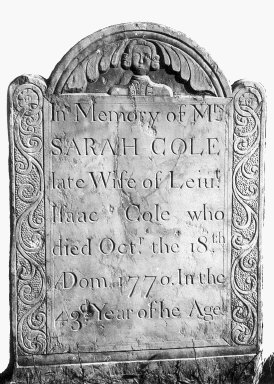 In Memory of Mrs
SARAH COLE
late Wife of Leiut
Isaac Cole who
died Octr. the 18th
ADom. 1770. In the
43d Year of he Age.